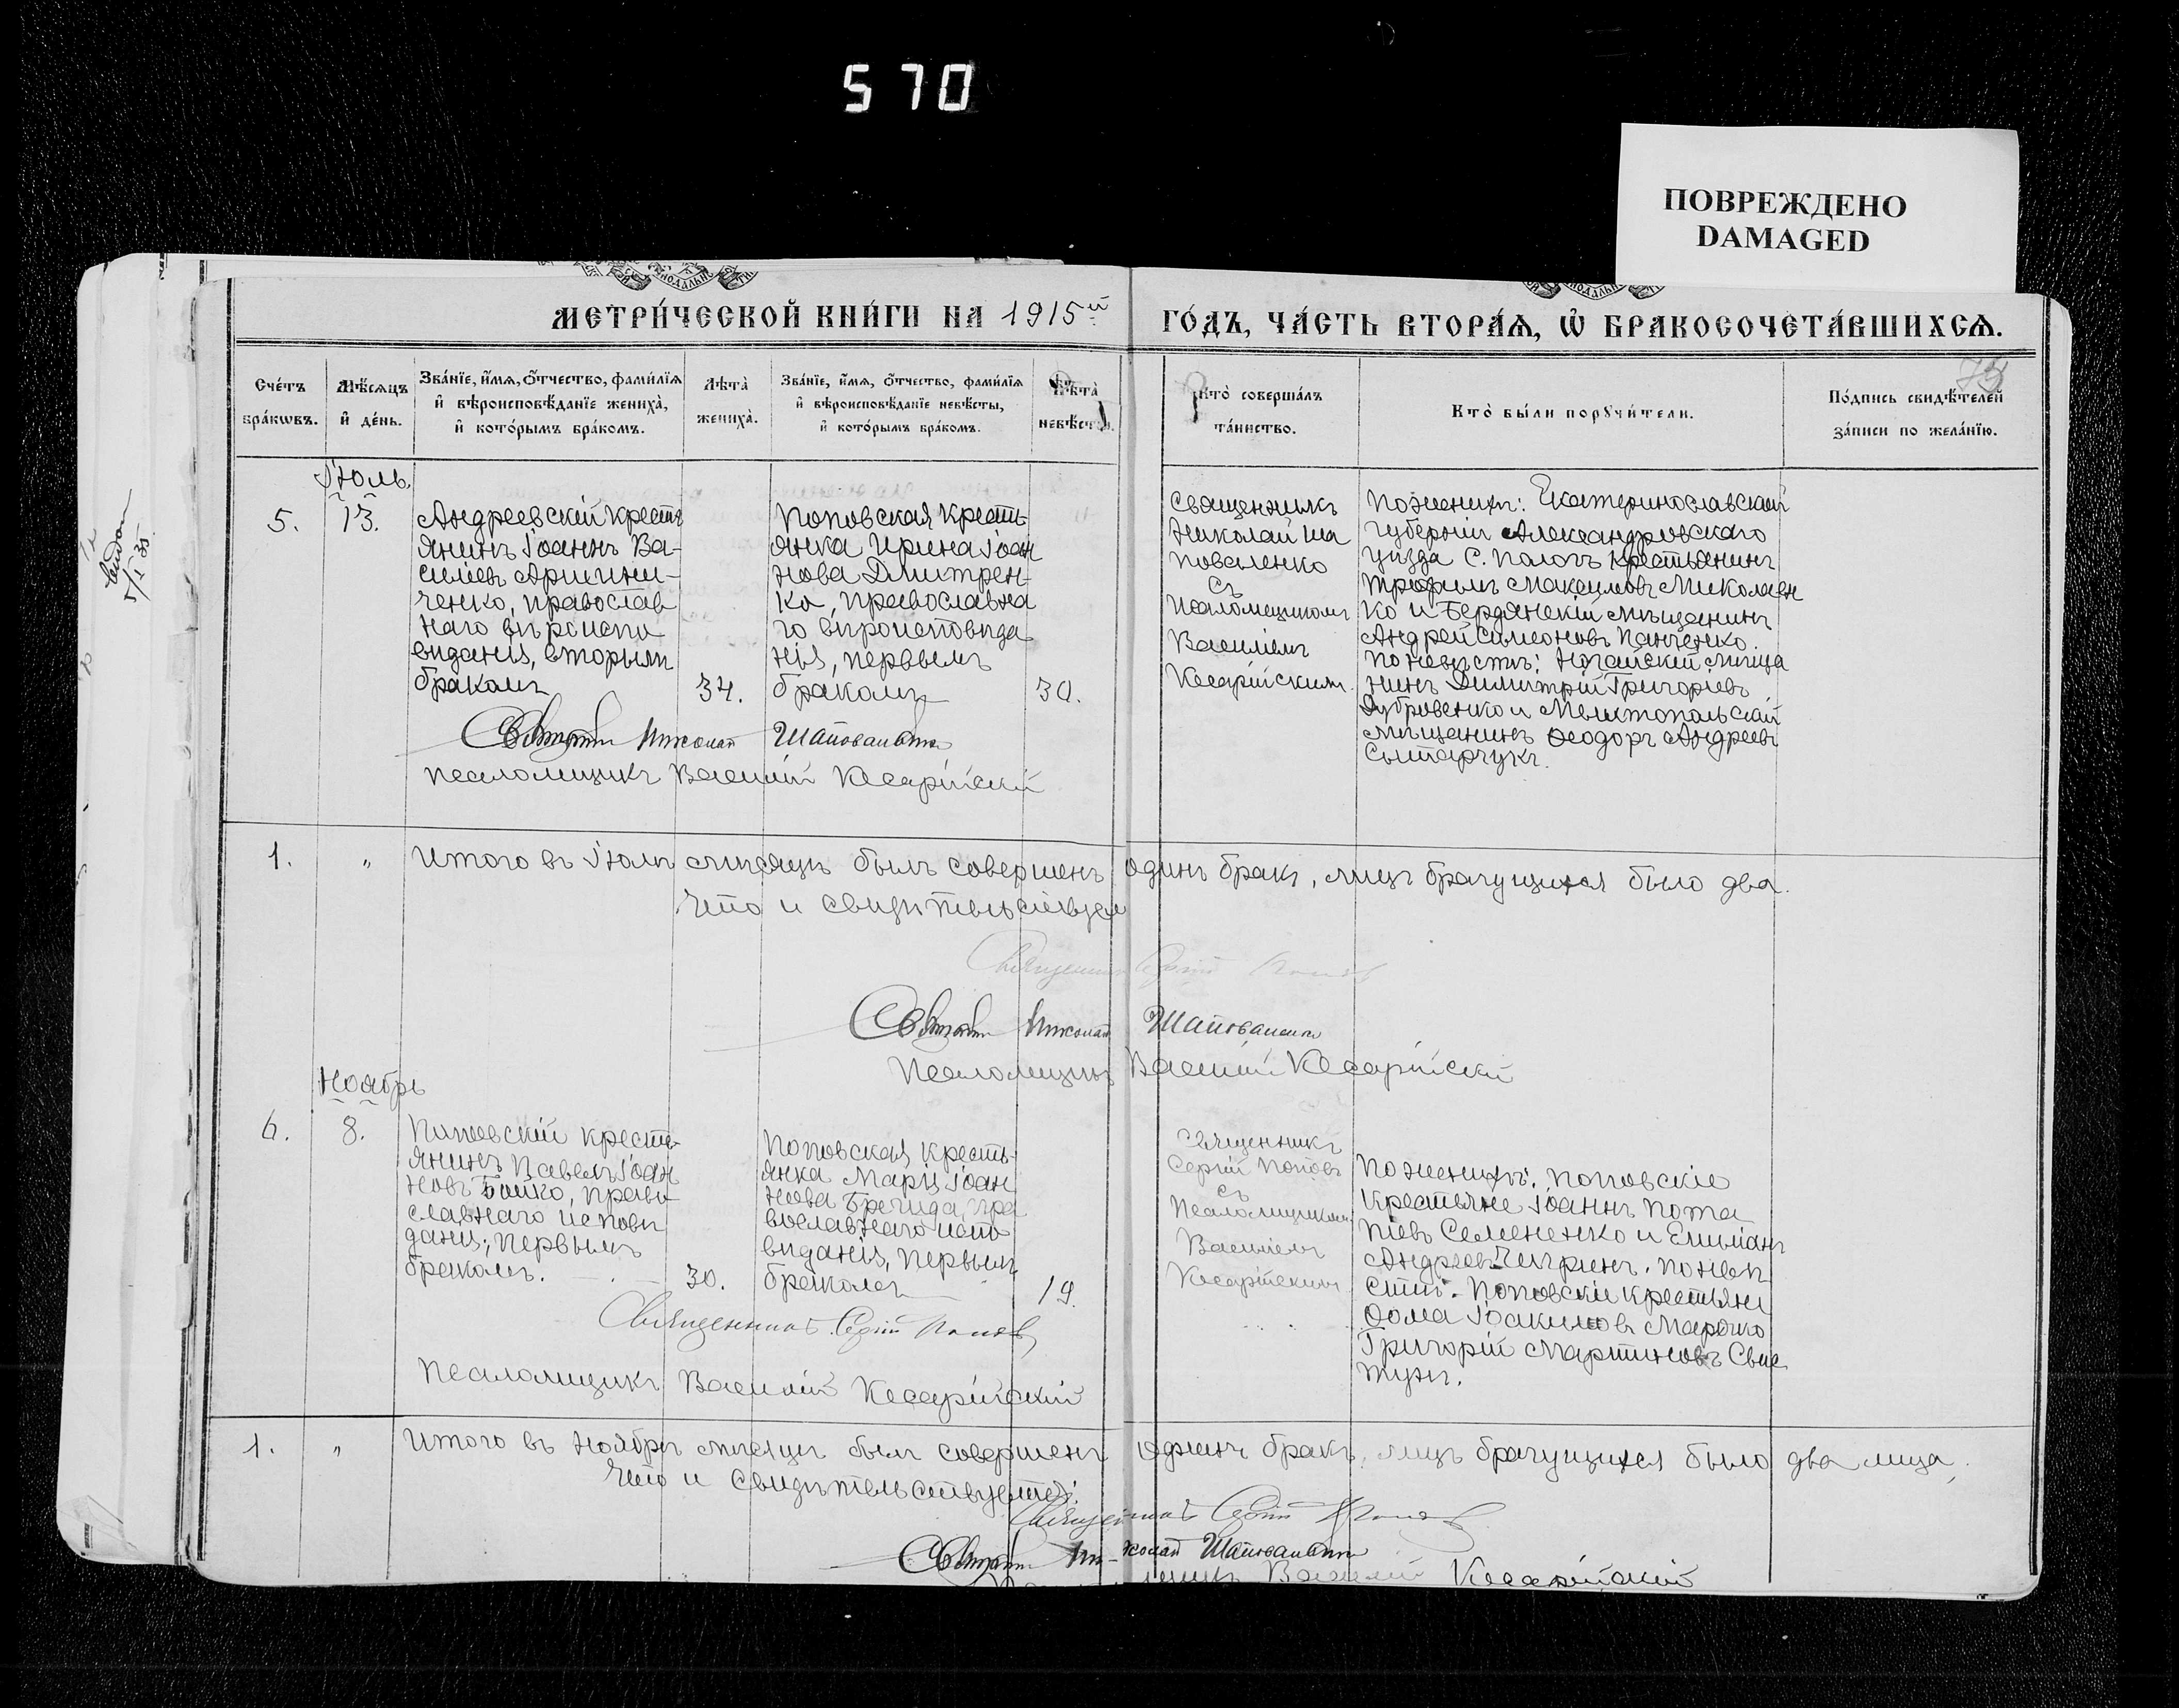 570
ПОВРЕЖДЕНО
DAMAGED
МЕТРИ́ЧЕСКОЙ КНИ́ГИ НА 1915й ГО́ДЪ, ЧА́СТЬ ВТОРА́Ѧ, Ѡ҆ БРАКОСОЧЕТА́ВШИХСѦ.
Сче́тъ
бра́кѡвъ.
Мѣ́сѧцъ
и҆ де́нь.
Зва́нїе, и҆́мѧ, ѻ҆́тчество, фами́лїѧ
и҆ вѣроисповѣ́данїе жениха̀,
и҆ кото́рымъ бра́комъ.
Лѣта̀
жениха̀.
Зва́нїе, и҆́мѧ, ѻ҆́тчество, фами́лїѧ
и҆ вѣроисповѣ́данїе невѣ́сты,
и҆ кото́рымъ бра́комъ.
Лѣта̀
невѣ́сты.
Кто̀ соверша́лъ
та́инство.
Кто̀ бы́ли порꙋчи́тели.
По́дпись свидѣ́телей
за́писи по жела́нїю.
Іюль.
5.
13.
Андреевскій кресть
янинъ Іоаннъ Ва-
силіевъ
ченко, православ
наго вѣроиспо
вѣданія, вторымъ
бракомъ
34.
Поповская кресть-
янка Ирина Іоан
нова Дмитрен-
ко, православна
го вѣроисповѣда
нія, первымъ
бракомъ
30.
Священникъ
Николай Ша
поваленко
съ
псаломщикомъ
Василіемъ
Кесарійскимъ.
По женихѣ: Екатеринославской
губерніи Александровскаго
уѣзда С. Пологъ крестьянинъ
Трофимъ Максимовъ Миколаен
ко и Бердянскій мѣщанинъ
Андрей Симеоновъ Панченко.
По невѣстѣ: Ногайскій мѣща
нинъ Димитрій Григоріевъ
Дубровенко и Мелитопольскій
мѣщанинъ Ѳеодоръ Андреевъ
Сытарчукъ.
Священникъ Николай Шаповаленко
Псаломщикъ Василій Кесарійскій
1. " Итого въ Іюлѣ мѣсяцѣ былъ совершенъ одинъ бракъ, лицъ брачущихся было два.
Что и свидѣтельствуемъ
Священникъ Сергій Поповъ
Священникъ Николай Шаповаленко
Псаломщикъ Василій Кесарійскій
Ноябрь
6.
8.
Поповскій кресть-
янинъ Павелъ Іоан
новъ Бойко, право
славнаго исповѣ
данія, первымъ
бракомъ.
30.
Поповская кресть-
янка Марія Іоан
нова пра
вославнаго испо
вѣданія, первымъ
бракомъ
19.
Священникъ
Сергій Поповъ
съ
Псаломщикомъ
Василіемъ
Кесарійскимъ
По женихѣ: Поповскіе
крестьяне Іоаннъ Пота
піевъ Семененко и Емиліанъ
Андреевъ Чигринъ. По невѣ
стѣ: Поповскіе крестьяне
Ѳома Іоакимовъ Марочко
Григорій Мартиновъ Сви
тунъ.
Священникъ Сергій Поповъ
Псаломщикъ Василій Кесарійскій
1. " Итого въ Ноябрѣ мѣсяцѣ былъ совершенъ одинъ бракъ, лицъ брачущихся было два лица,
Что и свидѣтельствуемъ:
Священникъ Сергій Поповъ
Священникъ Николай Шаповаленко
Василій Кесарійскій